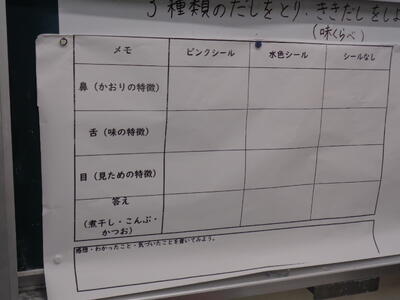 3種類のだしをとり、ききだしをしよ
(味くらべ)
メモ ピンクシール 水色シール シールなし
鼻(かおりの特徴)
舌(味の特徴)
目(見ための特徴)
答え
(煮干し・こんぶ・
かつお)
感想・わかったこと・気づいたことを書いてみよう。